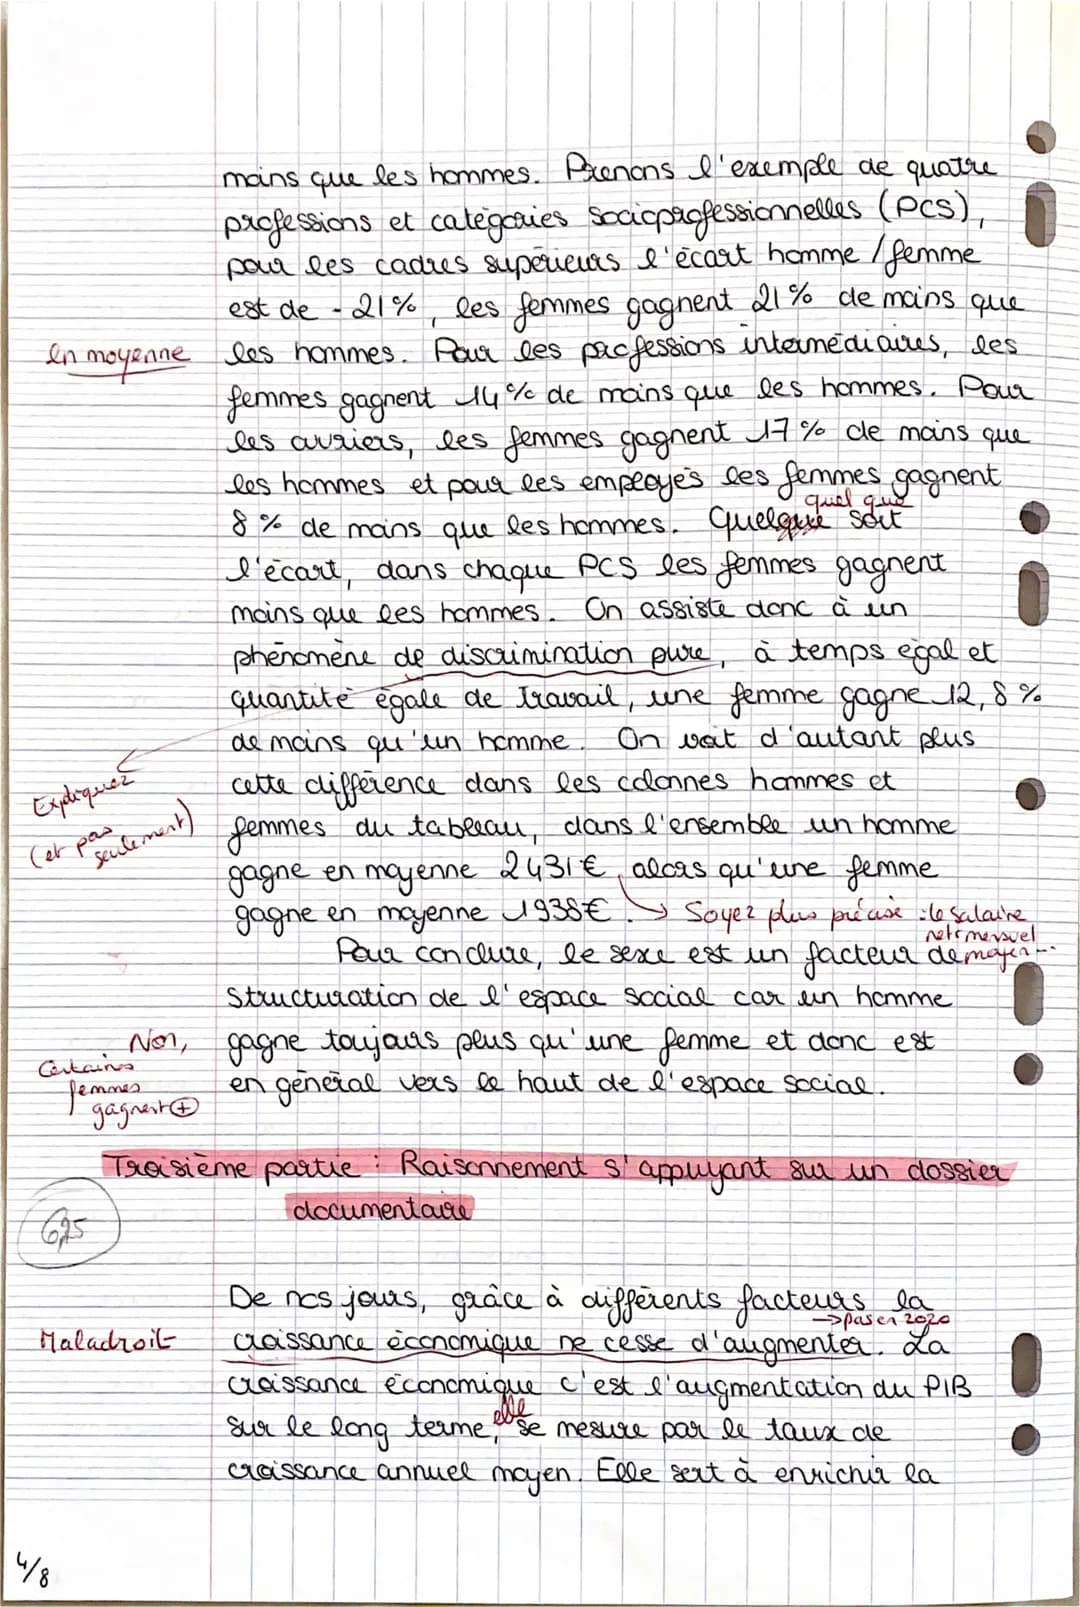 moins que les hommes. Prenons l'exemple de quatre
professions et catégories socioprofessionnelles (PCS),
pour les cadres supérieurs l'écart homme / femme
est de - 21 %, les femmes gagnent 21 % de moins que
en moyenne les hommes. Pour les professions intermédiaires, les
femmes gagnent 14 % de moins que les hommes. Pour
les ouvriers, les femmes gagnent 17 % de moins que
les hommes et pour les employés les femmes gagnent
quel que
8 % de moins que les hommes. Quelque soit
l'écart, dans chaque PCS les femmes gagnent
moins que les hommes. On assiste donc à un
phénomène de discrimination pure, à temps égal et
quantité égale de travail, une femme gagne 12,8 %
de moins qu'un homme. On voit d'autant plus
Expliquez cette différence dans les colonnes hommes et
(et pas seulement) femmes du tableau, dans l'ensemble un homme
gagne en moyenne 2431 €, alors qu'une femme
gagne en moyenne 1938 €. → Soyez plus précise : le salaire
net mensuel
moyen...
Pour conclure, le sexe est un facteur de
structuration de l'espace social car un homme
Non, gagne toujours plus qu'une femme et donc est
Certaines femmes gagnent + en général vers le haut de l'espace social.
Troisième partie : Raisonnement s'appuyant sur un dossier
documentaire
6,25
De nos jours, grâce à différents facteurs la
→ pas en 2020
Maladroit croissance économique ne cesse d'augmenter. La
croissance économique c'est l'augmentation du PIB
elle
sur le long terme, se mesure par le taux de
croissance annuel moyen. Elle sert à enrichir la
4/8